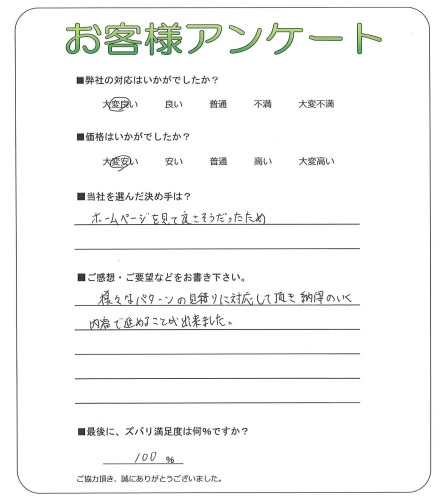 お客様アンケート
■弊社の対応はいかがでしたか？
大変良い 良い 普通 不満 大変不満
■価格はいかがでしたか？
大変安い 安い 普通 高い 大変高い
■当社を選んだ決め手は？
ホームページを見て良さそうだったため
■ご感想・ご要望などをお書き下さい。
様々なパターンの見積りに対応して頂き納得のいく
内容で進めることが出来ました。
■最後に、ズバリ満足度は何％ですか？
100 %
ご協力頂き、誠にありがとうございました。